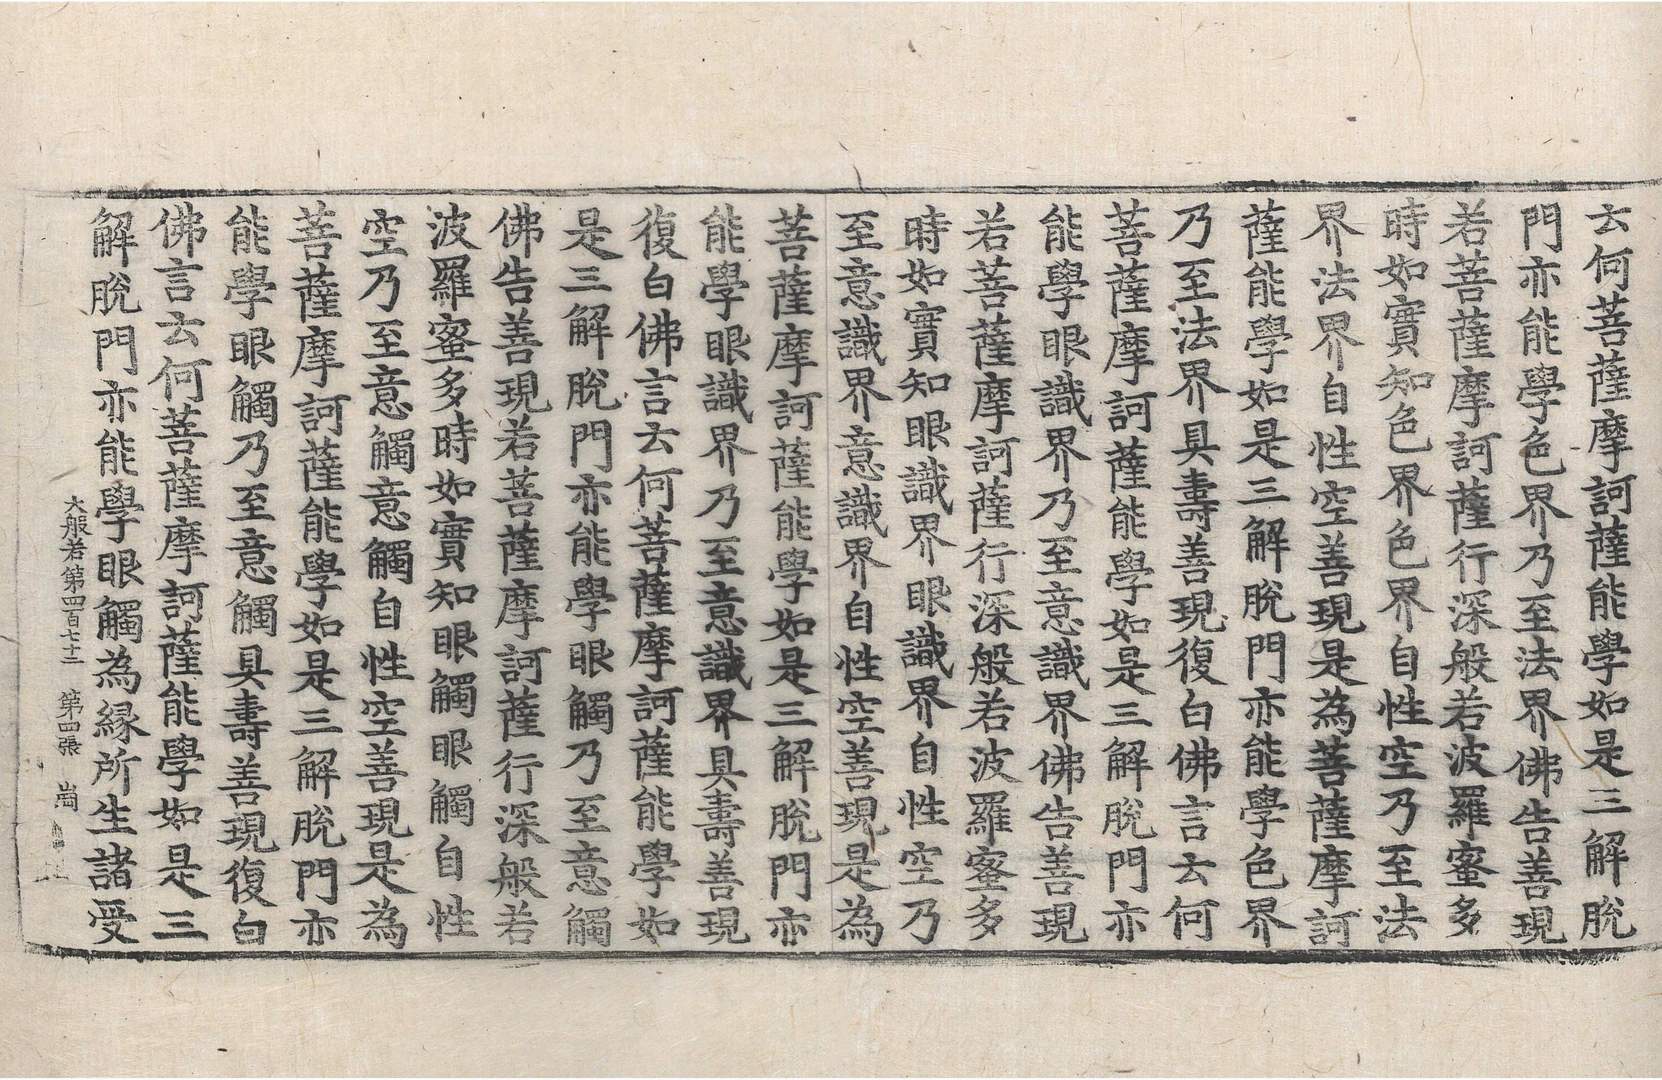 云何菩薩摩訶薩能學如是三解脫
門亦能學色界乃至法界佛告善現
若菩薩摩訶薩行深般若波羅蜜多
時如實知色界色界自性空乃至法
界法界自性空善現是為菩薩摩訶
薩能學如是三解脫門亦能學色界
乃至法界具壽善現復白佛言云何
菩薩摩訶薩能學如是三解脫門亦
能學眼識界乃至意識界佛告善現
若菩薩摩訶薩行深般若波羅蜜多
時如實知眼識界眼識界自性空乃
至意識界意識界自性空善現是為
菩薩摩訶薩能學如是三解脫門亦
能學眼識界乃至意識界具壽善現
復白佛言云何菩薩摩訶薩能學如
是三解脫門亦能學眼觸乃至意觸
佛告善現若菩薩摩訶薩行深般若
波羅蜜多時如實知眼觸眼觸自性
空乃至意觸意觸自性空善現是為
菩薩摩訶薩能學如是三解脫門亦
能學眼觸乃至意觸具壽善現復白
佛言云何菩薩摩訶薩能學如是三
解脫門亦能學眼觸為緣所生諸受
大般若第四百七十二 第四張 崗